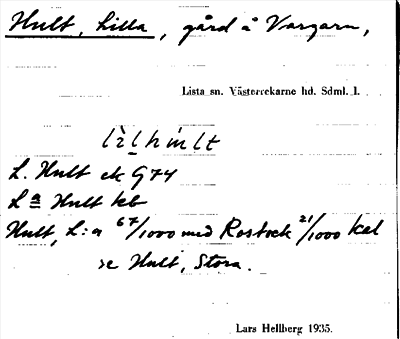 Hult, Lilla, gård å Vargarn,
Lista sn. Västerrekarne hd. Sdml. l.
L. Hult ek G74
L<u>a</u> Hult kb
Hult, L:a 67/1000 med Rostock 21/1000 kel
se Hult, Stora.
Lars Hellberg 1935.